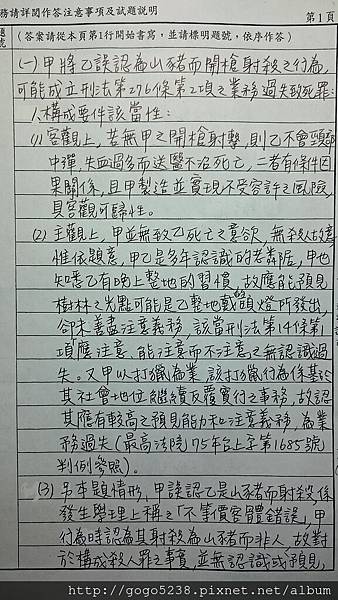 務請詳閱作答注意事項及試題說明
第1頁
題號
(答案請從本頁第1行開始書寫,並請標明題號,依序作答)
(一)甲將乙誤認為山豬而開槍射殺之行為,
可能成立刑法第276條第2項之業務過失致死罪:
1.構成要件該當性:
(1)客觀上,若無甲之開槍射擊,則乙不會頸部
中彈,失血過多而送醫不治死亡,二者有條件因
果關係,且甲製造並實現不受容許之風險,
具客觀可歸性。
(2)主觀上,甲並無致乙死亡之意欲,無殺人故意
惟依題意,甲乙是多年認識的老鄰居,甲也
知悉乙有晚上整地的習慣,故應能預見
樹林之光點可能是乙整地戴的頭燈所發出,
卻未善盡注意義務,該當刑法第14條第1
項應注意、能注意而不注意之無認識過
失。又甲以打獵為業,該打獵行為係基於
其社會地位繼續反覆實行之事務,故認
其應有較高之預見能力和注意義務,為業
務過失(最高法院75年台上字第1685號
判例參照)。
(3)另本題情形,甲誤認乙是山豬而射殺,係
發生學理上稱之「不等價客體錯誤」,甲
行為時認為其射殺為山豬而非人,故對
於構成殺人罪之事實,並無認識或預見,
http://gogo5238.pixnet.net/album